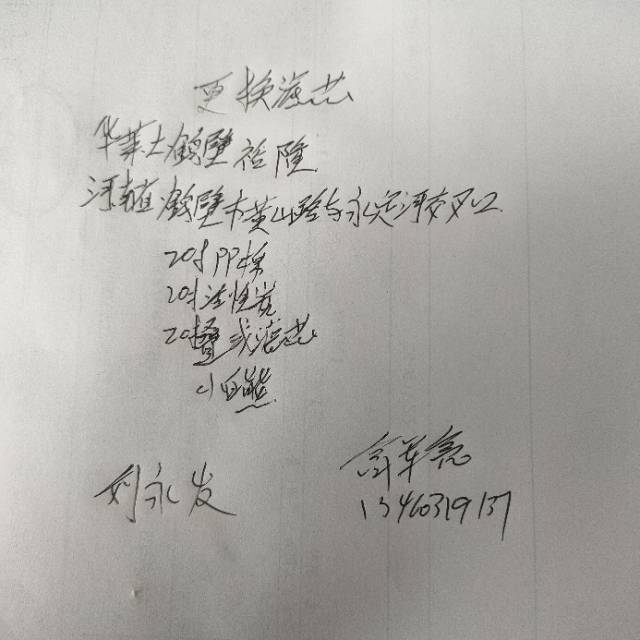 更换滤芯
华莱士鹤壁裕隆
河南省鹤壁市黄山路与永定河交叉口
20寸PP棉
20寸活性炭
20寸叠式滤芯
小白熊
刘永发
13460319137